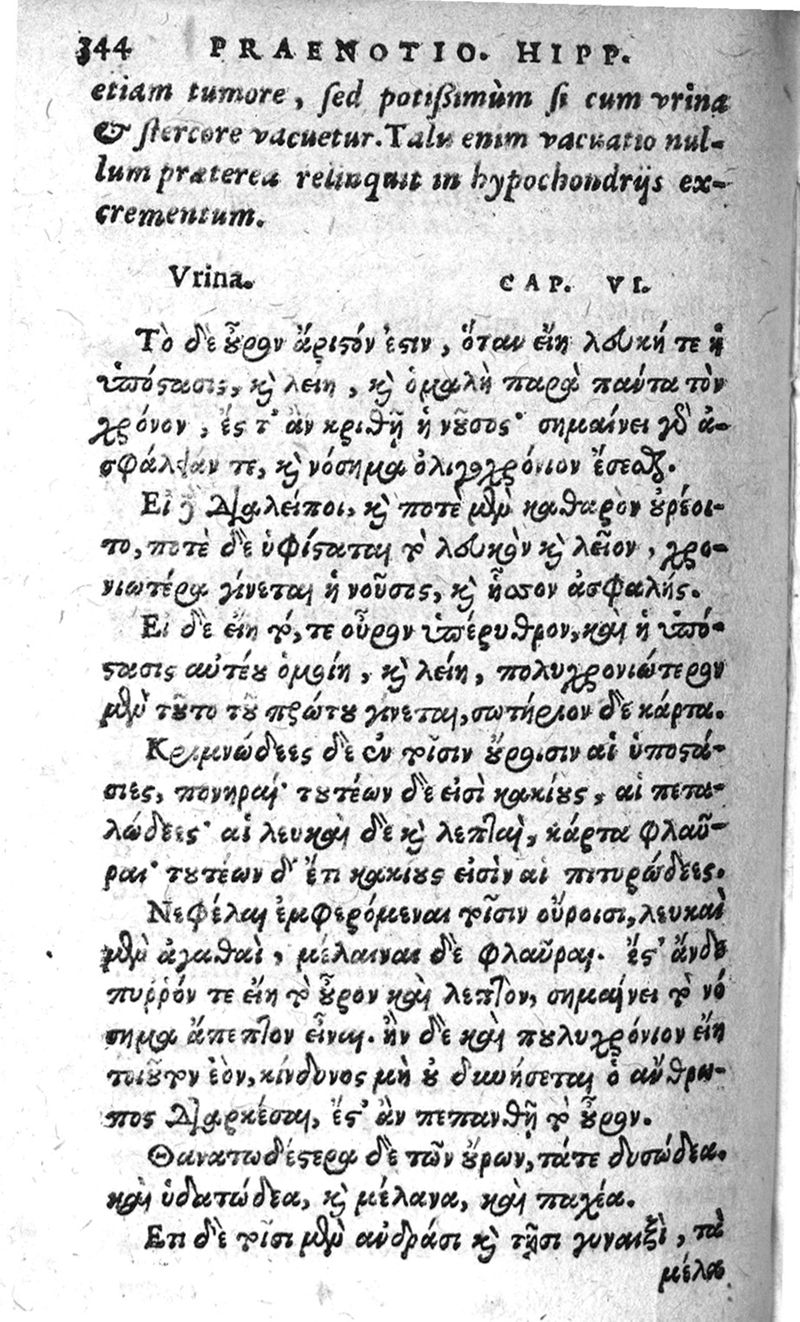 344 PRAENOTIO. HIPP.
etiam tumore, sed potißimùm si cum vrina
& stercore vacuetur. Talis enim vacuatio nul-
lum præterea relinquit in hypochondrijs ex-
crementum.
Vrina. CAP. VI.
Τὸ δὲ οὖρον ἄριϛόν ἐϛιν, ὅταν εἴη λευκή τε ἡ
ὑπόϛασις, καὶ λείη, καὶ ὁμαλὴ παρὰ πάντα τὸν
χρόνον, ἐς τ' ἂν κριθῇ ἡ νοῦσος· σημαίνει γὰρ ἀ-
σφάλειάν τε, καὶ νόσημα ὀλιγοχρόνιον ἔσεσθαι.
Εἰ δὲ διαλείποι, καὶ ποτὲ μὲν καθαρὸν οὐρέοι-
το, ποτὲ δὲ ὑφίϛαται τὸ λευκὸν καὶ λεῖον, χρο-
νιωτέρα γίνεται ἡ νοῦσος, καὶ ἧσσον ἀσφαλής.
Εἰ δὲ εἴη τό, τε οὖρον ὑπέρυθρον, καὶ ἡ ὑπό-
ϛασις αὐτέου ὁμοίη, καὶ λείη, πολυχρονιώτερον
μὲν τοῦτο τοῦ πρώτου γίνεται, σωτήριον δὲ κάρτα.
Κριμνώδεες δὲ ἐν τοῖσιν οὔροισιν αἱ ὑποϛά-
σιες, πονηραί· τουτέων δὲ εἰσὶ κακίους, αἱ πετα-
λώδεες· αἱ λευκαὶ δὲ καὶ λεπταὶ, κάρτα φλαῦ-
ραι· τουτέων δ' ἔτι κακίους εἰσὶν αἱ πιτυρώδεες.
Νεφέλαι ἐμφερόμεναι τοῖσιν οὔροισι, λευκαὶ
μὲν ἀγαθαὶ, μέλαιναι δὲ φλαῦραι. ἔϛ' ἂν δὲ
πυῤῥόν τε εἴη τὸ οὖρον καὶ λεπτὸν, σημαίνει τὸ νό
σημα ἄπεπτον εἶναι. ἢν δὲ καὶ πουλυχρόνιον εἴη
τοιοῦτον ἐὸν, κίνδυνος μὴ οὐ δυνήσεται ὁ ἄνθρω-
πος διαρκέσαι, ἔϛ' ἂν πεπανθῇ τὸ οὖρον.
Θανατωδέϛερα δὲ τῶν οὔρων, τάτε δυσώδεα.
καὶ ὑδατώδεα, καὶ μέλανα, καὶ παχέα.
Ετι δὲ τοῖσι μὲν ἀνδράσι καὶ τῇσι γυναιξὶ, τὰ
μέλα